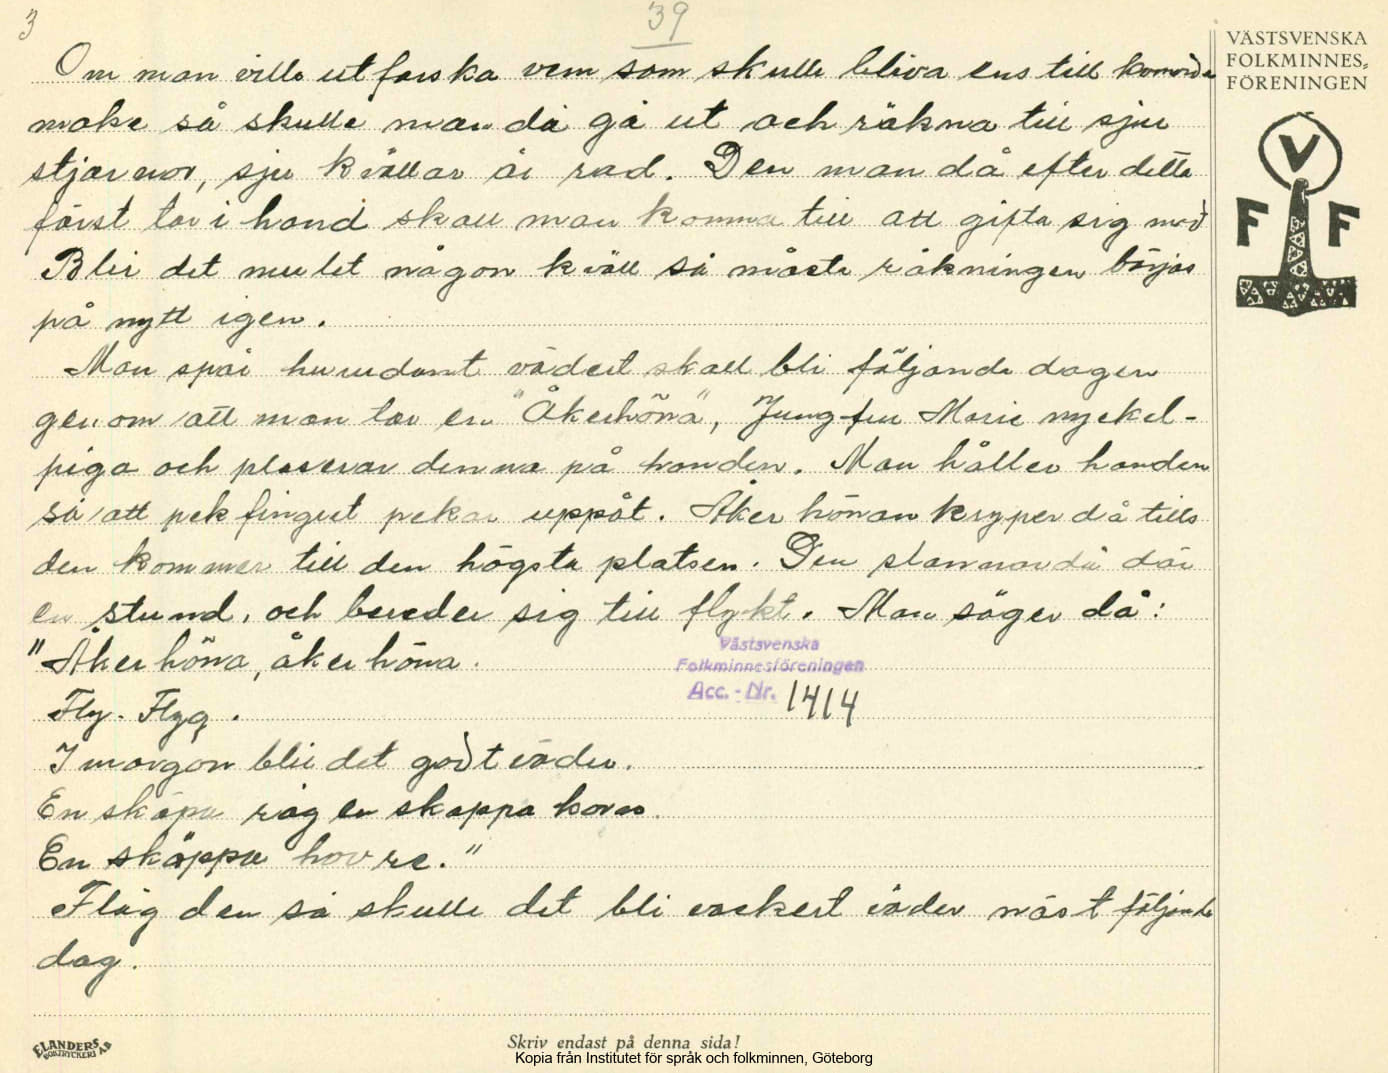 3
39
VÄSTSVENSKA
FOLKMINNES-
FÖRENINGEN
V
F F
Om man ville utforska vem som skulle bliva ens till kommande
make så skulle man då gå ut och räkna till sju
stjärnor, sju kvällar å rad. Den man då efter detta
först tar i hand skall man komma till att gifta sig med
Blir det mulet någon kväll så måste räkningen börjas
på nytt igen.
Man spår hurudant vädert skall bli följande dagen
genom att man tar en "Åkerhöna", Jungfru Marie nyckel-
piga och plaserar denna på handen. Man håller handen
så att pekfingret pekar uppåt. Åkerhönan kryper då tills
den kommer till den högsta platsen. Den stannar då där
en stund, och bereder sig till flykt. Man säger då:
"Åkerhöna, åkerhöna.
Fly. Flyg.
I morgon blir det godt väder.
En skäpa råg en skappa korn.
En skäppa havre."
Flög den så skulle det bli vackert väder näst följande
dag.
Västsvenska
Folkminnesföreningen
Acc.-Nr. 1414
ELANDERS
BOKTRYCKERI AB
Skriv endast på denna sida!
Kopia från Institutet för språk och folkminnen, Göteborg